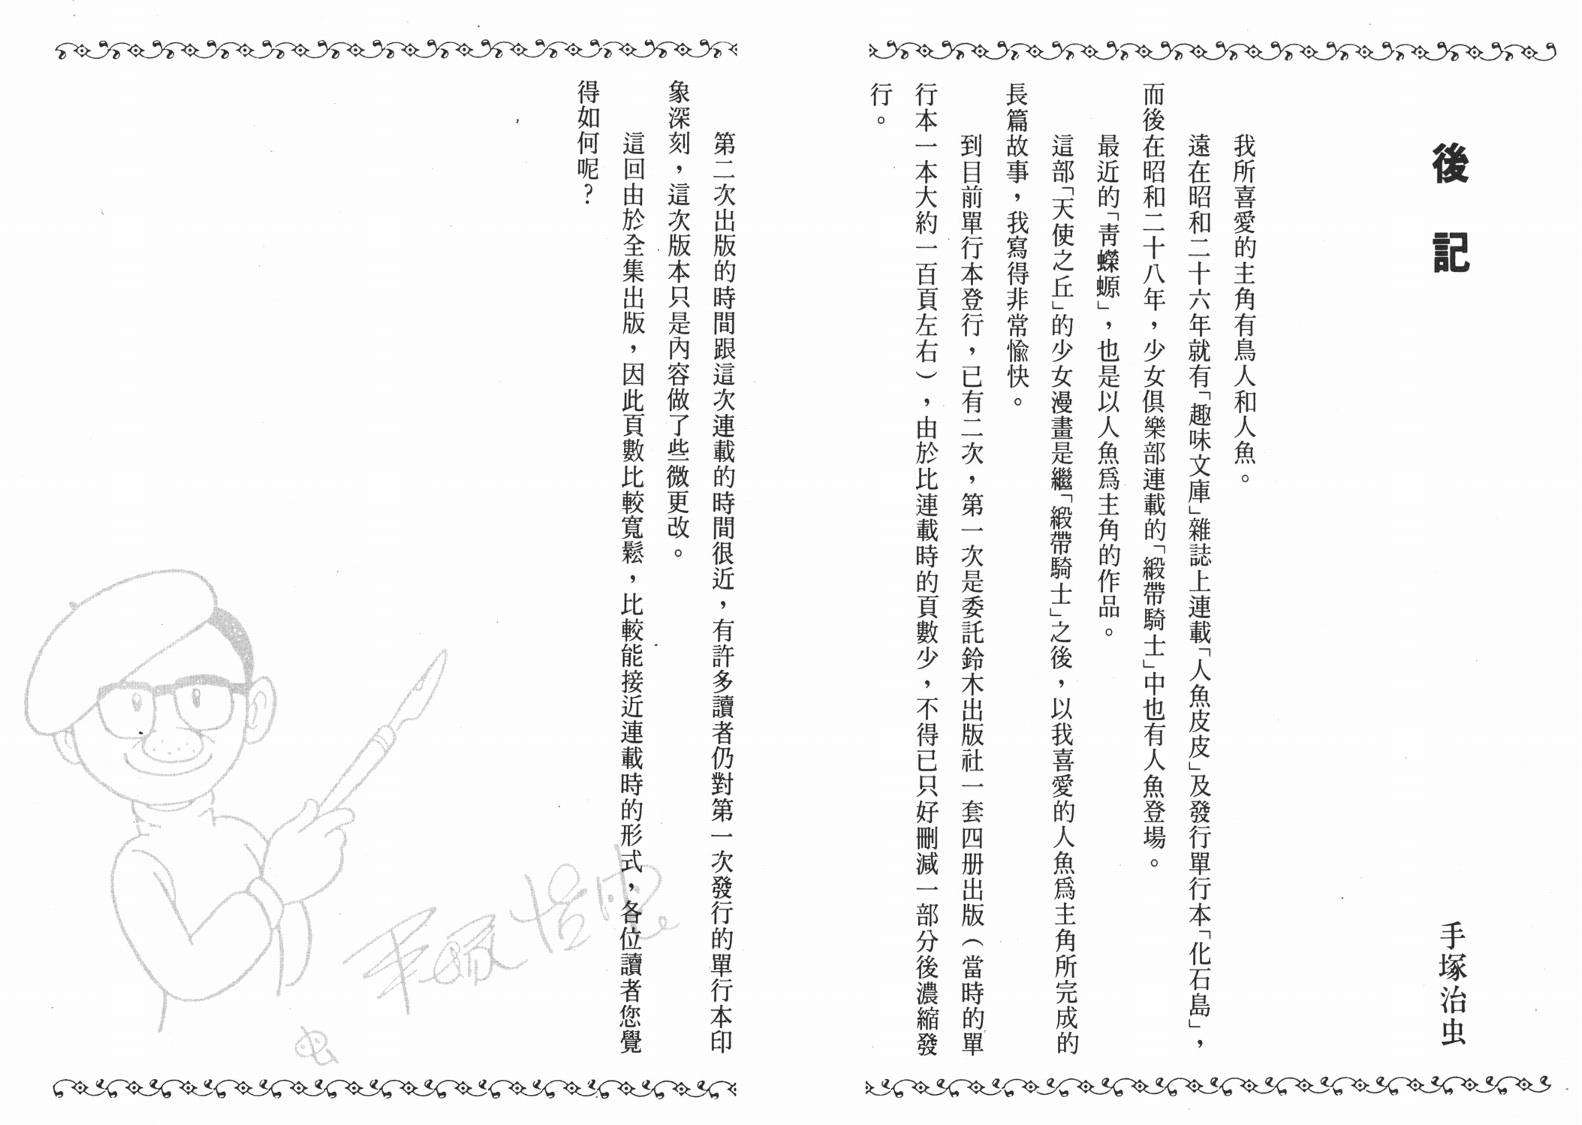 後記
手塚治虫
我所喜愛的主角有鳥人和人魚。
遠在昭和二十六年就有「趣味文庫」雜誌上連載「人魚皮皮」及發行單行本「化石島」，
而後在昭和二十八年，少女俱樂部連載的「緞帶騎士」中也有人魚登場。
最近的「青蠑螈」，也是以人魚爲主角的作品。
這部「天使之丘」的少女漫畫是繼「緞帶騎士」之後，以我喜愛的人魚爲主角所完成的
長篇故事，我寫得非常愉快。
到目前單行本登行，已有二次，第一次是委託鈴木出版社一套四册出版（當時的單
行本一本大約一百頁左右），由於比連載時的頁數少，不得已只好刪減一部分後濃縮發
行。
第二次出版的時間跟這次連載的時間很近，有許多讀者仍對第一次發行的單行本印
象深刻，這次版本只是內容做了些微更改。
這回由於全集出版，因此頁數比較寬鬆，比較能接近連載時的形式，各位讀者您覺
得如何呢？
手塚治虫